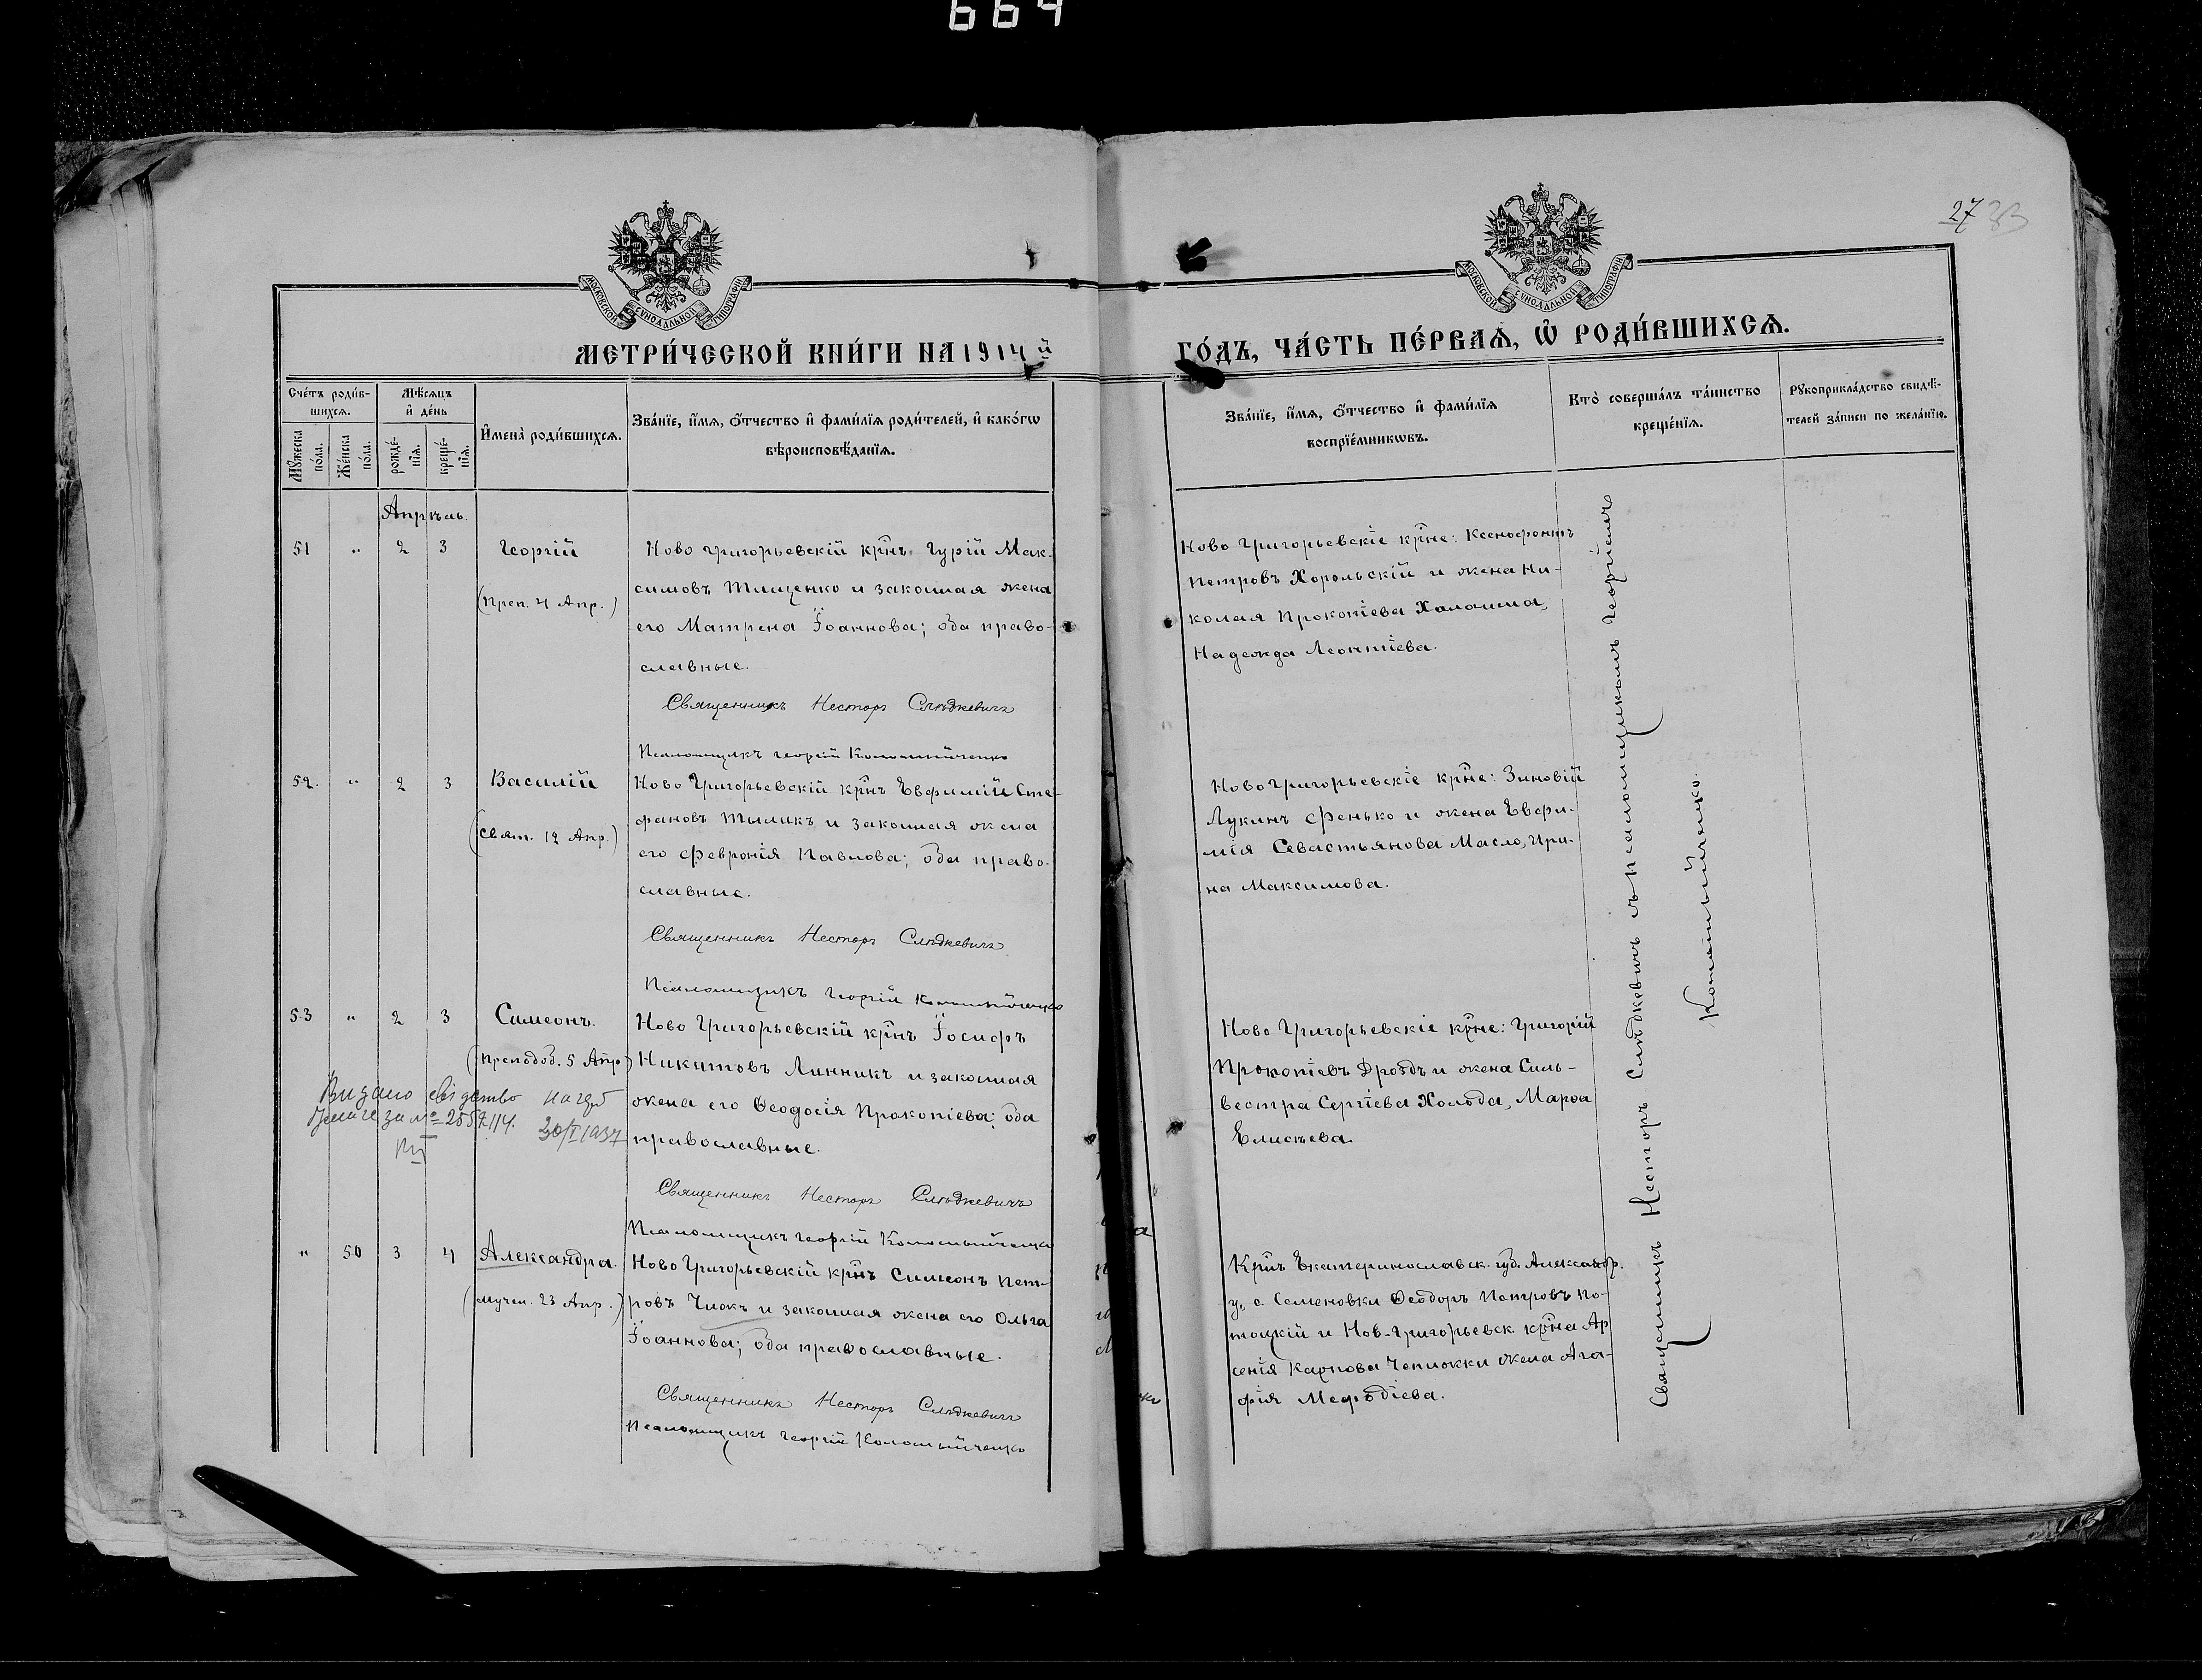 664
27 33
МОСКОВСКОЙ СѴНОДАЛЬНОЙ ТИПОГРАФІИ
МОСКОВСКОЙ СѴНОДАЛЬНОЙ ТИПОГРАФІИ
МЕТРИ́ЧЕСКОЙ КНИ́ГИ НА 1914й
ГО́ДЪ, ЧА́СТЬ ПЕ́РВАѦ, Ѡ҆ РОДИ́ВШИХСѦ.
Сче́тъ роди́в-
шихсѧ.
Мѣ́сѧцъ
и҆ де́нь
Мꙋ́жеска по́ла.
Же́нска по́ла.
рожде́-
нїѧ.
креще́-
нїѧ.
И҆мена̀ роди́вшихсѧ.
Зва́нїе, и҆́мѧ, ѻ҆́тчество и҆ фами́лїѧ роди́телей, и҆ како́гѡ
вѣроисповѣ́данїѧ.
Зва́нїе, и҆́мѧ, ѻ҆́тчество и҆ фами́лїѧ
воспрїе́мникѡвъ.
Кто̀ соверша́лъ та́инство
креще́нїѧ.
Рꙋкоприкла́дство свидѣ́-
телей за́писи по жела́нїю.
Апрѣль.
51 " 2 3 Георгій
(Преп. 4 Апр.)
Ново Григорьевскій кр͠нъ Гурій Мак-
симовъ Тищенко и законная жена
его Матрена Іоаннова; оба право-
славные.
Священникъ Несторъ Слѣдкевичъ
Псаломщикъ Георгій Коломійченко
Ново Григорьевскіе кр͠не: Ксенофонтъ
Петровъ Хорольскій и жена Ни-
колая Прокопіева
Надежда Леонтіева.
52. " 2 3 Василій
(Свят. 12 Апр.)
Ново Григорьевскій кр͠нъ Евфимій Сте-
фановъ Тымикъ и законная жена
его Февронія Павлова; оба право-
славные.
Священникъ Несторъ Слѣдкевичъ
Псаломщикъ Георгій Коломійченко
Ново Григорьевскіе кр͠не: Зиновій
Лукинъ Фенько и жена Евфи-
мія Севастьянова Масло, Ири-
на Максимова.
53 " 2 3 Симеонъ.
(Преподоб. 5 Апр)
Видано свідоцтво
за № 255714.
20/I 1937
Ново Григорьевскій кр͠нъ Іосифъ
Никитовъ Линникъ и законная
жена его Ѳеодосія Прокопіева; оба
православные.
Священникъ Несторъ Слѣдкевичъ
Псаломщикъ Георгій Коломыйченко
Ново Григорьевскіе кр͠не: Григорій
Прокопіевъ Дроздъ и жена Силь-
вестра Сергіева Холода, Марѳа
Елисѣева.
" 50 3 4 Александра.
(Мучен. 23 Апр.)
Ново Григорьевскій кр͠нъ Симеонъ Пет-
ровъ Чижъ и законная жена его Ольга
Іоаннова; оба православные.
Священникъ Несторъ Слѣдкевичъ
Псаломщикъ Георгій Коломыйченко
Кр͠нъ Екатеринославск. губ. Александр.
у. с. Семеновки Ѳеодоръ Петровъ По-
тоцкій и Нов-Григорьевск. кр͠на Ар
сенія Карпова Чепижки жена Ага-
фія Меѳодіева.
Священникъ Несторъ Слѣдкевичъ съ псаломщикомъ Георгіемъ
Коломыйченко.